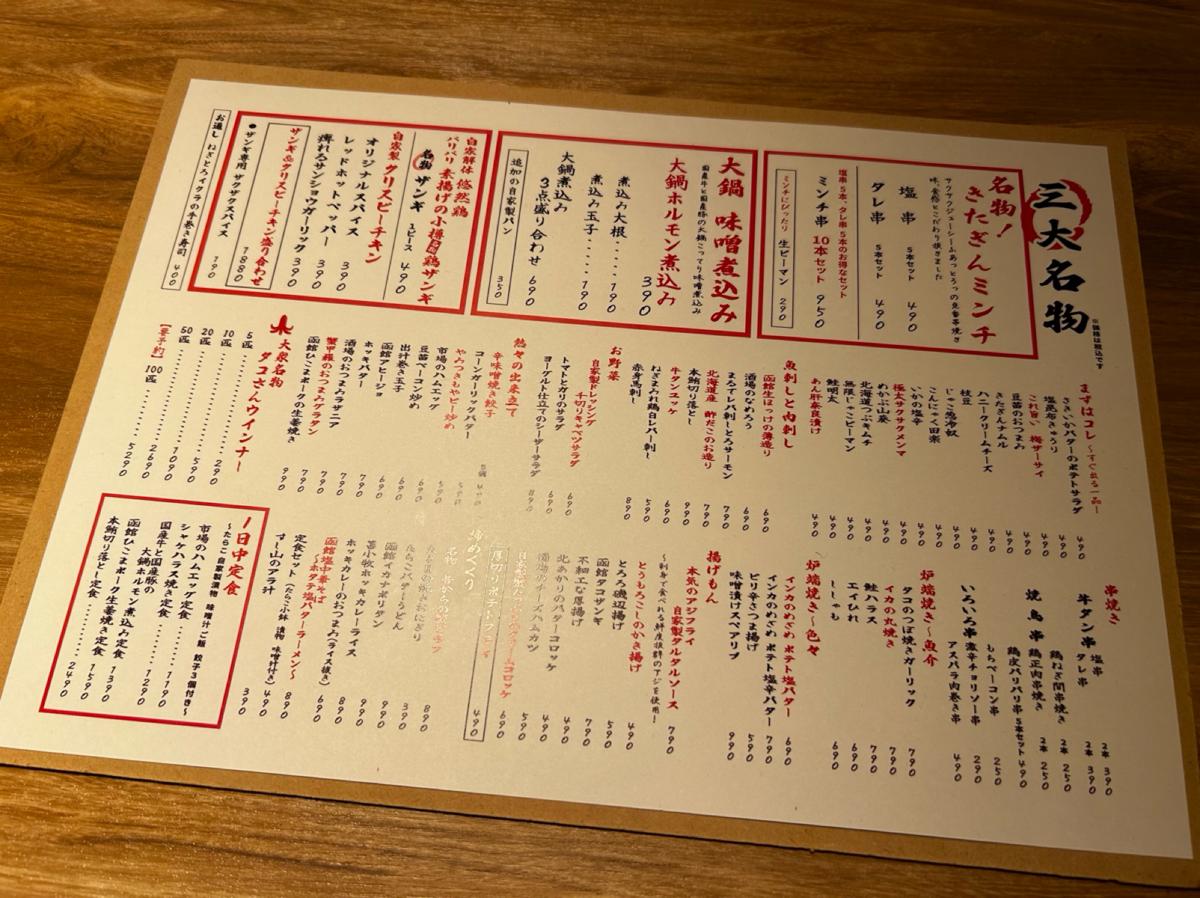 三大名物
※価格は税込です
名物！
きたぎんミンチ
味、食感とこだわり抜きました
塩串 5本セット 490
タレ串 5本セット 490
塩串5本、タレ串5本のお得なセット
ミンチ串 10本セット 950
ミンチにぴったり 生ピーマン 290
大鍋 味噌煮込み
国産牛と国産豚の大鍋こってり味噌煮込み
大鍋ホルモン煮込み 390
煮込み大根 190
煮込み玉子 190
大鍋煮込み
3点盛り合わせ 690
追加の自家製パン 350
自家解体 悠然鶏
バリバリ素揚げの小樽名物鶏ザンギ
名物 ザンギ 1ピース 490
自家製 クリスピーチキン
オリジナルスパイス 390
レッドホットペッパー 390
痺れるサンショウガーリック 390
ザンギ&クリスピーチキン盛り合わせ 1880
●ザンギ専用 ザクザクスパイス 190
お通し ねぎとろイクラの手巻き寿司 400
まずはコレ〜すぐ出る一品〜
さきいかバターのポテトサラダ 490
塩昆布きゅうり 490
これ旨い 梅ザーサイ 490
豆苗のおつまみ 490
きたぎんナムル 490
ハニークリームチーズ 490
じゃこ葱冷奴 490
枝豆 490
こんにゃく田楽 490
いかの塩辛 490
極太サクサクメンマ 490
めかぶ山葵 490
北海道つぶキムチ 490
無限じゃこピーマン 490
鮭明太 490
あん肝奈良漬け 490
魚刺しと肉刺し
函館生ほっけの薄造り 690
酒場のなめろう 690
まるでレバ刺しとろサーモン 790
北海道産 酢だこのお造り 790
本鮪切り落とし 990
牛タンユッケ 690
ねぎまみれ鶏白レバー刺し 590
赤身馬刺し 890
お野菜
自家製ドレッシング
千切りキャベツサラダ 690
トマトとガリのサラダ 690
ヨーグルト仕立てのシーザーサラダ 890
悠々の出来立て
辛味噌焼き餃子 5個 490
コーンガーリックバター 590
やみつきもやピー炒め
市場のハムエッグ 590
豆苗ベーコン炒め 690
出汁巻き玉子 690
函館アヒージョ 690
ホッキバター 790
酒場のおつまみラザニア 790
蟹甲羅のおつまみグラタン 790
函館ひこまポークの生姜焼き 990
大衆名物
タコさんウインナー
5匹 290
10匹 590
20匹 1090
50匹 2690
【要予約】100匹 5290
串焼き
牛タン串 塩串 2本 390
タレ串 2本 390
焼鳥串 鶏ねぎ間串焼き 2本 250
鶏正肉串焼き 2本 250
鶏皮パリパリ串 5本セット 490
もちベーコン串 250
いろいろ串 激辛チョリソー串 290
アスパラ肉巻き串 490
炉端焼き〜魚介
タコのつぼ焼きガーリック 790
イカの丸焼き 790
鮭ハラス 790
エイひれ 690
ししゃも 690
炉端焼き〜色々
インカのめざめ ポテト塩バター 690
インカのめざめ ポテト塩辛バター 790
ピリ辛さつま揚げ 590
味噌漬けスペアリブ 990
揚げもん
本気のアジフライ
自家製タルタルソース 790
〜刺身で食べれる鮮度抜群のアジを使用〜
とうもろこしのかき揚げ 490
とろろ磯辺揚げ 590
函館タコザンギ 790
不細工な厚揚げ 490
北あかりのバターコロッケ 490
酒場のチーズハムカツ 590
690
厚切りポテトフライ 490
締めくくり
890
390
たらこバターうどん 990
函館イカナポリタン 990
苫小牧ホッキカレー 890
ホッキカレーのおつまみ(ライス抜き) 690
函館塩中華そば
〜ホタテ塩バターラーメン〜 890
定食セット (たらこ小鉢 漬物 味噌汁付き) 490
すし山のアラ汁 390
一日中定食
〜たらこ 自家製漬物 味噌汁 ご飯 餃子3個付き〜
市場のハムエッグ定食 1190
シャケハラス焼き定食 1290
国産牛と国産豚の
大鍋ホルモン煮込み定食 1390
函館ひこまポーク生姜焼き定食 1590
本鮪切り落とし定食 2490